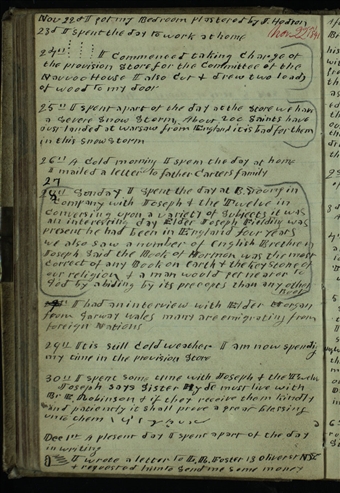 Nov 22d I got my Bedroom plastered by J. Hodson
Nov 22 1841
23d I spent the day to work at home
24th I Commenced taking Charge of
the provision Store for the Committee of the
Nauvoo House I also cut & drew two loads
of wood to my door
25th I spent a part of the day at the Store we had
a severe Snow Storm. About 200 Saints have
just landed at Warsaw from England it is bad for them
in this Snow Storm
26th A Cold morning I spent the day at home
I mailed a letter to father Carters family
27
28th Sunday I spent the day at B. Young in
Company with Joseph & the Twelve in
conversing upon a variety of Subjects it was
an interesting day Elder Joseph Fielding was
present he had been in England four years
we also saw a number of English Brethren
Joseph Said the Book of Mormon was the most
correct of any Book on earth & the key stone of
our religion & a man would get nearer to
God by abiding by its precepts than any other
Book
I had an interview with Elder Morgan
from Garway Wales many are emigrating from
foreign Nations
29th It is still Cold weather I am now spending
my time in the provision Store
30th I spent some time with Joseph & the Twelve
Joseph says Sister Hyde must live with
Br E. Robinson & if they receive them kindly
and patiently it shall prove a great blessing
unto them
Dec 1st A pleasant day I spent a part of the day
in writing
I wrote a letter to
& requested him to send me some money